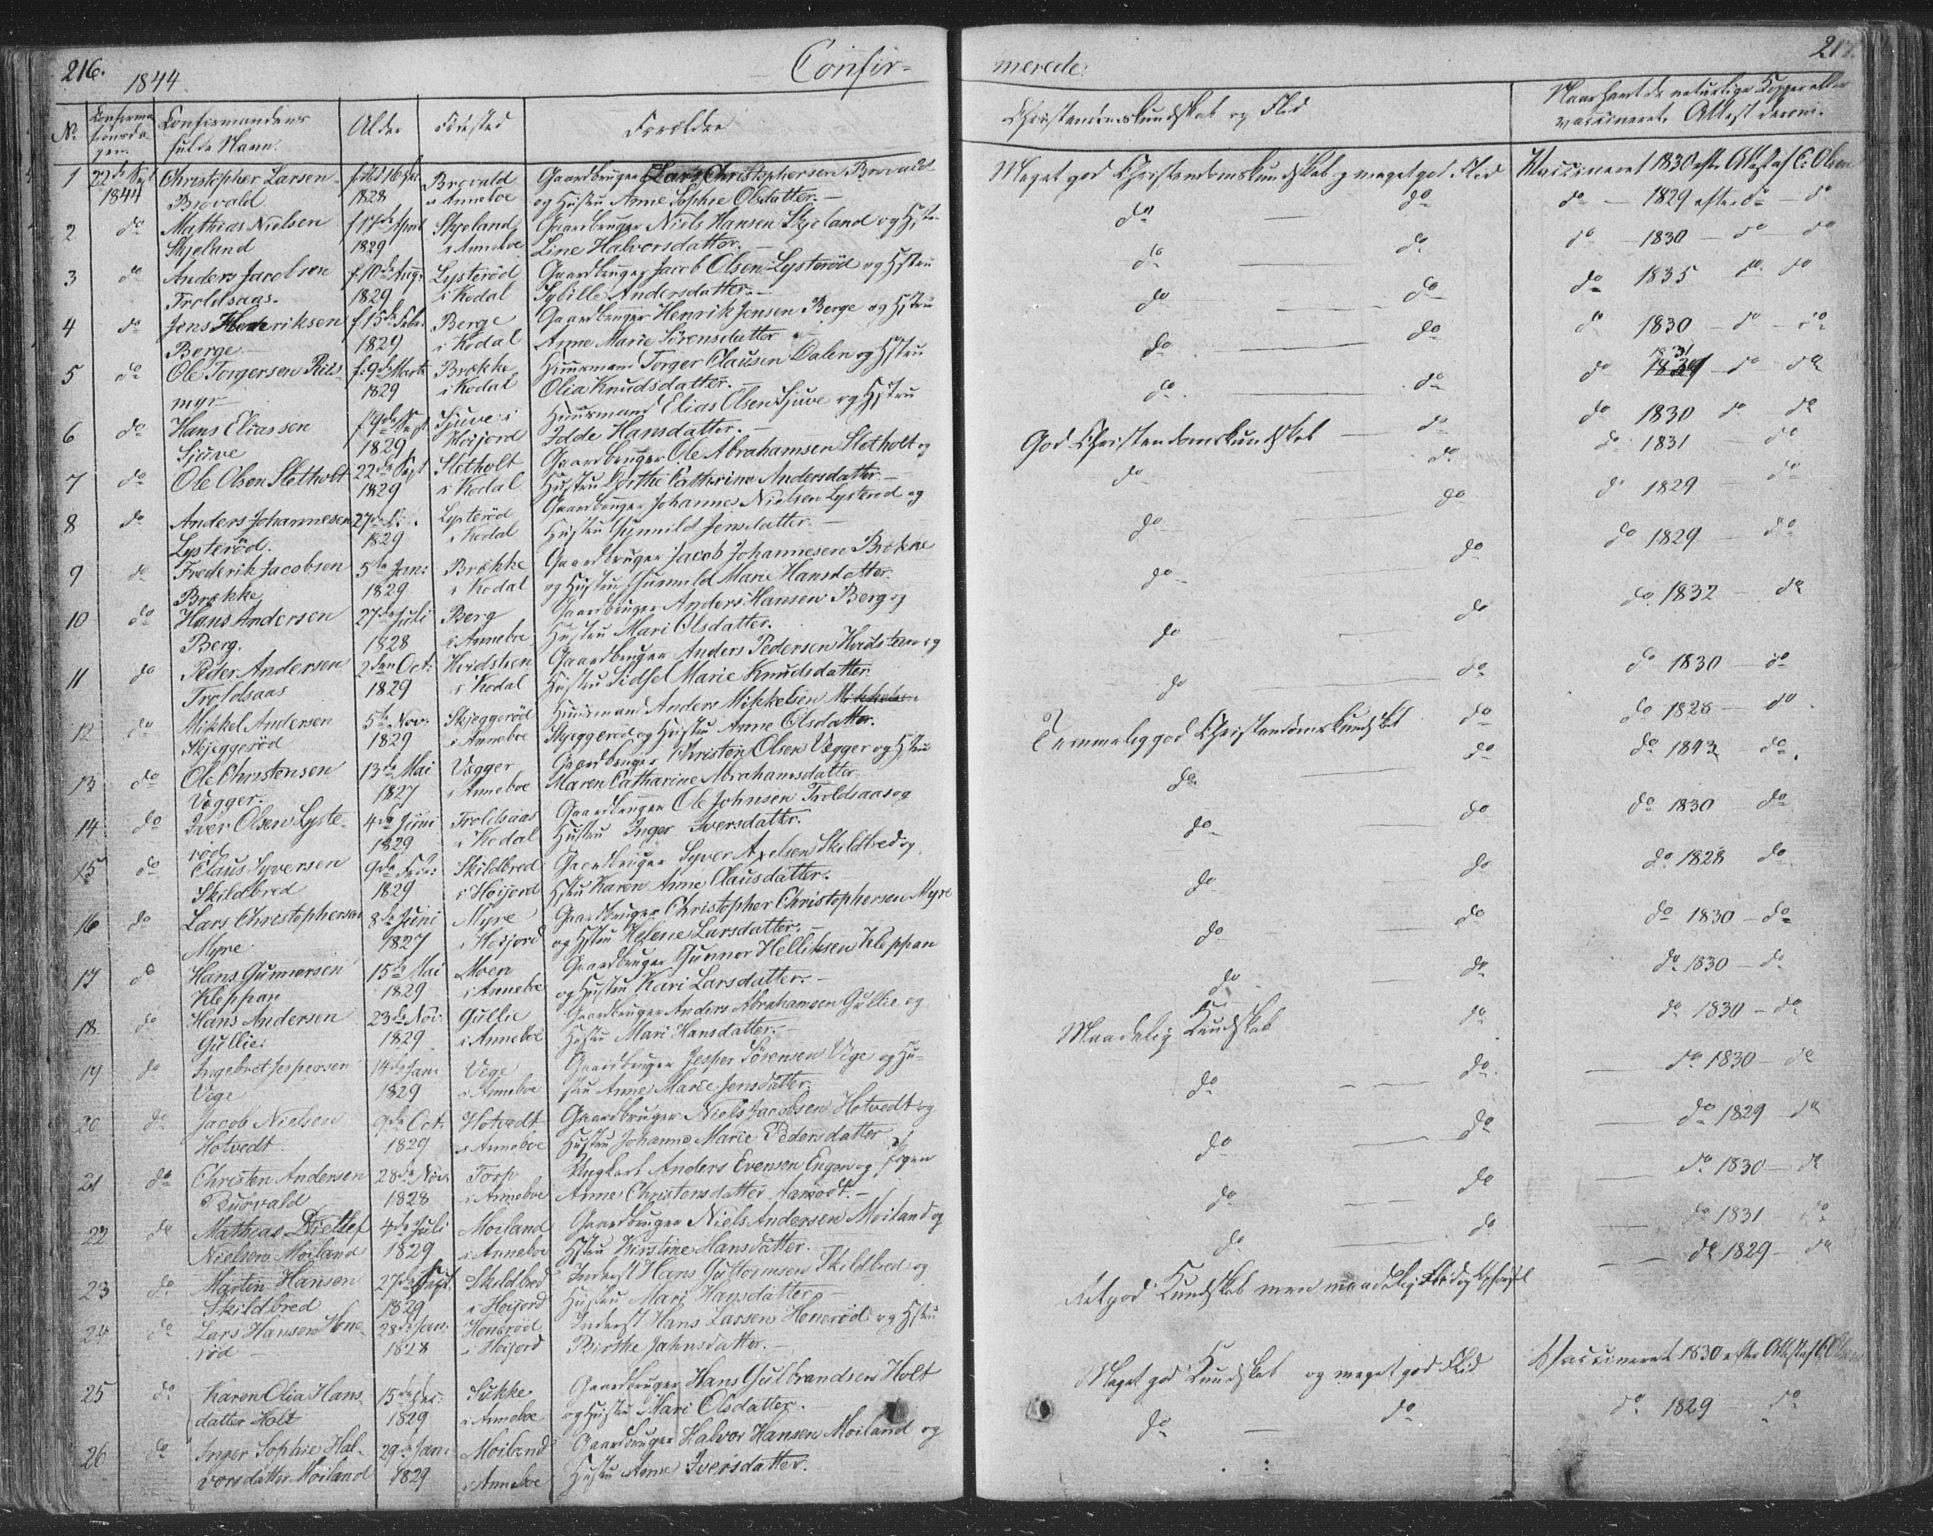 216.
1844.
Confir-
No.
Confirma
tionsda
gen.
Confirmandens
fulde Navn.
Alder
Fødested
Forældre
1 22de Sept Christopher Larsen Brøvald Gaardbruger Lars Christophersen Brøvald
1844 Brøvald 1828 i Anneboe og Hustru Anne Sophie Olsdatter.
2 do Mathias Nielsen f. 17de April Skjeland Gaardbruger Niels Hansen Skjeland og Hstr.
Skjeland 1829 i Anneboe Line Halvorsdatter.
3 do Anders Jacobsen f. 10de Aug. Lysterød Gaardbruger Jacob Olsen Lysterød og Hstru
Troldsaas. 1829 i Kodal Sybille Andersdatter.
4 do Jens Henriksen f. 15de Febr. Berge Gaardbruger Henrik Jensen Berge og Hstru
Berge 1829 i Kodal Anne Marie Sørensdatter
5 do Ole Torgersen Riis- f. 9de Marts Brække Huusmand Torger Clausen Dalen og Hstru
myr 1829 i Kodal Olia Knudsdatter.
6 do Hans Eliassen f. 9de Sept Sjuve i Huusmand Elias Olsen Sjuve og Hstru
Sjuve 1829 Høijord Idde Hansdatter.
7 do Ole Olsen Slotholt 22de Sept Slotholt Gaardbruger Ole Abrahamsen Slotholt og
1829 i Kodal Hustru Dorthe Catherine Andersdatter
8 do Anders Johannesen 27de Lysterød Gaardbruger Johannes Nielsen Lysterød og
Lysterød. 1829 i Kodal Hustru Gunnild Jensdatter.
9 do Frederik Jacobsen 5te Jan: Brække Gaardbruger Jacob Johannesen Brække
Brække 1829 i Kodal og Hustru Gunnild Marie Hansdatter.
10 do Hans Andersen 27de Juli Berg Gaardbruger Anders Hansen Berg og
Berg. 1828 i Anneboe Hustru Mari Olsdatter.
11 do Peder Andersen 2den Oct: Hvidsteen Gaardbruger Anders Pedersen Hvidsteen og
Troldsaas 1829 i Kodal Hustru Sidsel Marie Knudsdatter
12 do Mikkel Andersen 5te Nov: Skjeggerød Huusmand Anders Mikkelsen Mikkelsen
Skjeggerød 1829 i Anneboe Skjeggerød og Hustru Anne Olsdatter.
13 do Ole Christensen 13de Mai Vegger Gaardbruger Christen Olsen Vegger og Hstru
Vegger. 1827 i Anneboe Maren Catharine Abrahamsdatter
14 do Iver Olsen Lyste- 4de Juni Troldsaas Gaardbruger Ole Johnsen Troldsaas og
rød 1829 i Kodal Hustru Inger Iversdatter.
15 do Claus Syversen 9de Skildbred Gaardbruger Syver Axelsen Skildbred og
Skildbred 1829 i Høijord Hstru Karen Anne Clausdatter.
16 do Lars Christophersen 8de Juni Myre Gaardbruger Christopher Christophersen Myre
Myre 1827 i Høijord og Hstru Helene Larsdatter.
17 do Hans Gunnorsen 15de Mai Moen Gaardbruger Gunnor Helliksen Kleppan
Kleppan 1829 i Anneboe og Hustru Kari Larsdatter.
18 do Hans Andersen 23de Nov: Gullie Gaardbruger Anders Abrahamsen Gullie og
Gullie: 1829 i Anneboe Hustru Mari Hansdatter.
19 do Ingebret Jespersen 14de Jan: Vige Gaardbruger Jesper Sørensen Vige og Hu-
Vige 1829 i Anneboe stru Anne Marie Jensdatter.
20 do Jacob Nielsen 9de Oct: Hotvedt Gaardbruger Niels Jacobsen Hotvedt og
Hotvedt. 1829 i Anneboe Hustru Johanne Marie Pedersdatter
21 do Christen Andersen 28de Nov. Torp Ungkarl Anders Evensen Engen og Pigen
1828 i Anneboe Anne Christensdatter Aamodt.
22 do Mathias Dietlef 4de Juli Moiland Gaardbruger Niels Andersen Moiland og
Nielsen Moiland 1829 i Anneboe Hstru Kirstine Hansdatter.
23 do Martin Hansen 27de Sept. Skildbred Inderst Hans Guttormsen Skildbred og
Skildbred 1829 i Høijord Hustru Mari Hansdatter
24 do Lars Hansen Hone- 28de Jan: Honerød Inderst Hans Larsen Honerød og Hstru
rød 1828 i Høijord Birthe Jahnsdatter.
25 do Karen Olia Hans- 15de Dec: Sukke Gaardbruger Hans Gulbrandsen Holt
datter Holt 1829 i Anneboe og Hustru Mari Olsdatter.
26 do Inger Sophie Hal- 29de Jan: Moiland Gaardbruger Halvor Hansen Moiland og
vorsdatter Moiland 1829 i Anneboe Hustru Anne Iversdatter.
merede.
217.
Christendomskundskab og Flid
Naar havt de naturlige Kopper eller
vaccineret. Attest derom.
Meget god Christendomskundskab og meget god Flid Vaccineret 1830 efter Attest af C. Olsen
do — do do — 1829 efter do — do
do — do do — 1830 — do — do
do — do do 1835 do do
do — do do 1830 — do — do
do — do do 1831 — do — do
God Christendomskundskab — do do 1830 do do
do — do do 1831 do
do — do do 1829 — do
do — do do 1829 — do
do — do do 1832 — do
do — do do 1830 — do
Temmelig god Christendomskundskab do do 1828 — do
do — do do 1843 do
do — do do 1830 do
do — do do 1828 do
do — do do 1830 — do
do — do do 1830 — do
Maadelig Kundskab do do 1830 — do
do — do do 1830 — do
do — do do 1829 — do
do — do do 1830 — do
do — do do 1831 — do
do 1829 — do
Ret god Kundskab men maadelig Flid og Opførsel
Meget god Kundskab og meget god Flid Vaccineret 1830 efter Attest af C. Olsen
do — do do 1829 do